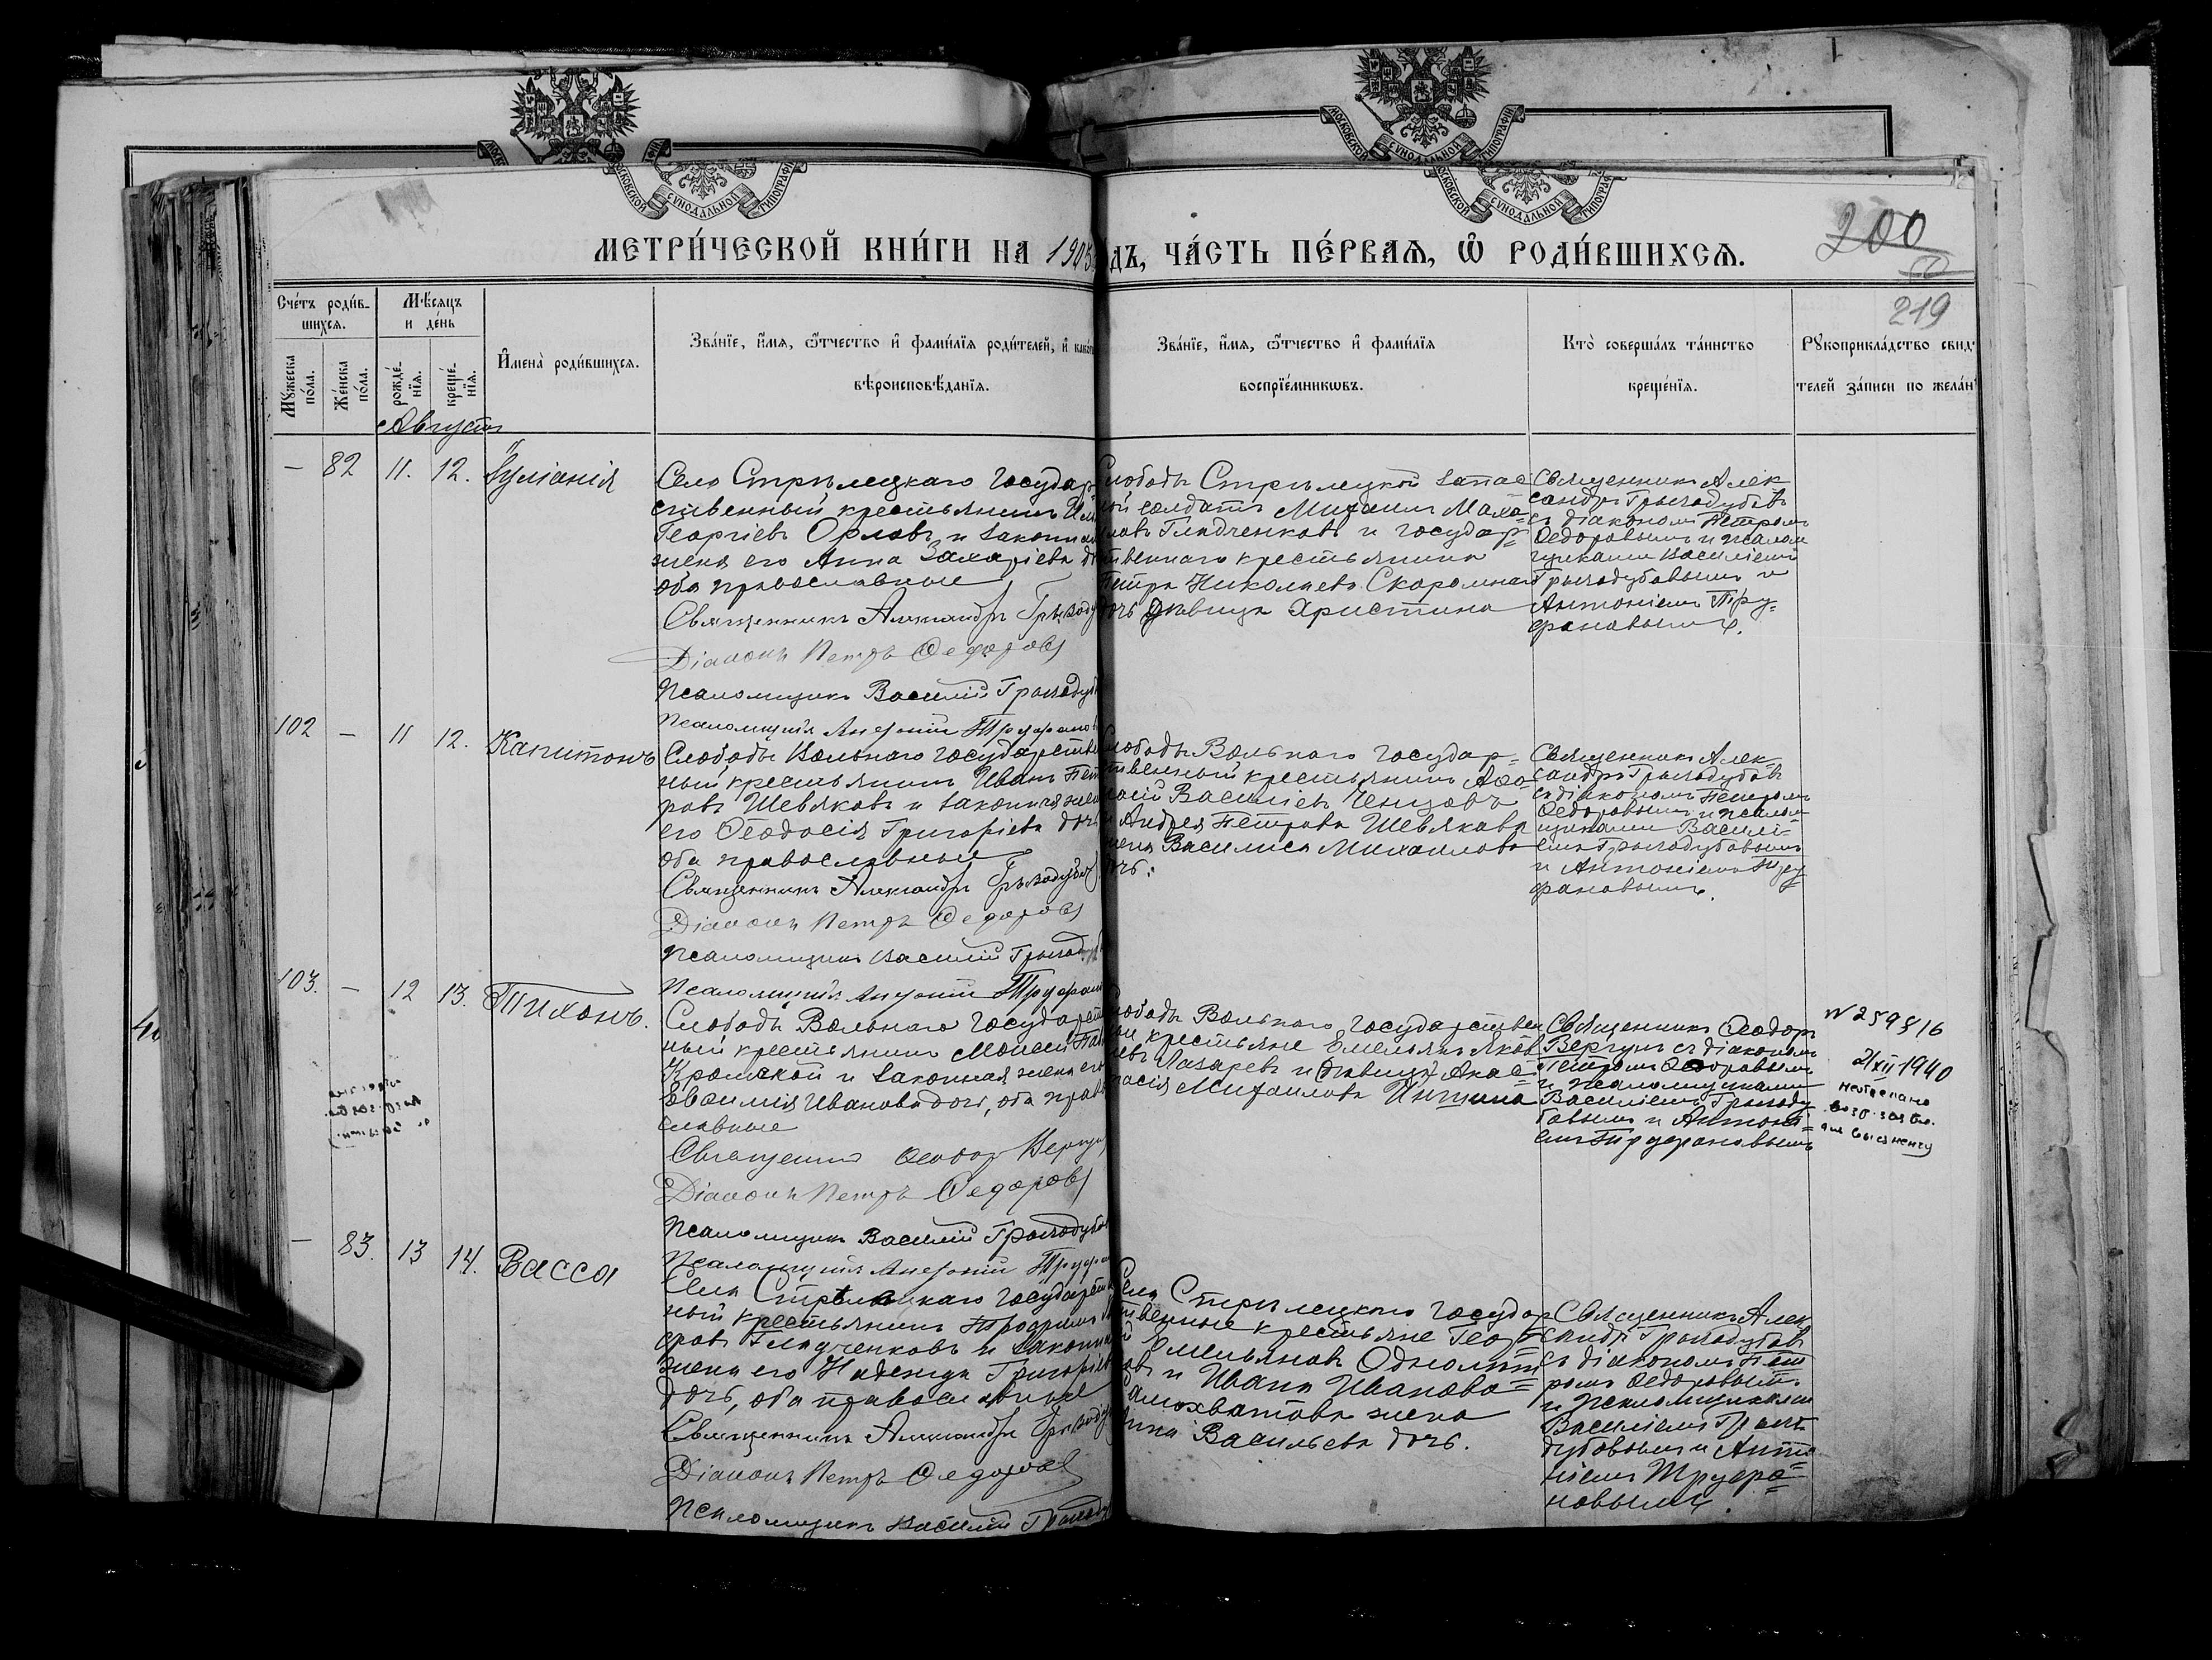 МОСКОВСКОЙ СУНОДАЛЬНОЙ ТИПОГРАФІИ
МЕТРИ́ЧЕСКОЙ КНИ́ГИ НА 1905
ДЪ, ЧА́СТЬ ПЕ́РВАѦ, Ѡ҆ РОДИ́ВШИХСѦ.
200
219
Сче́тъ роди́в-
шихсѧ.
Мѣ́сѧцъ
и де́нь
Мꙋ́жеска
по́ла.
Же́нска
по́ла.
рожде́-
нїѧ.
креще́-
нїѧ.
И҆мена̀ роди́вшихсѧ.
Зва́нїе, и҆́мѧ, ѻ҆́тчество и҆ фами́лїѧ роди́телей, и҆
вѣроисповѣ́данїѧ.
Зва́нїе, и҆́мѧ, ѻ҆́тчество и҆ фами́лїѧ
воспрїе́мникѡвъ.
Кто̀ соверша́лъ та́инство
креще́нїѧ.
Рꙋкоприкла́дство свид
телей за́писи по жела́н
Августъ
— 82 11. 12. Іуліанія
Село Стрѣлецкаго государ
ственный крестьянинъ
Георгіевъ Орловъ и законная
жена его Анна Захаріева
оба православные
Священникъ Александръ Грызоду
Діаконъ Петръ Ѳедоровъ
Псаломщикъ Василій Грызодуб
Псаломщикъ Антоній Труфанов
Слободы Стрѣлецкой запас
ной солдатъ Михаилъ
Гладченковъ и государ=
ственнаго крестьянина
Петра Николаева Скоромная
дочь дѣвица Христина
Священникъ Алек
сандръ Грызодубовъ
съ діакономъ Петромъ
Ѳедоровымъ и псалом
щиками Василіемъ
Грызодубовымъ и
Антоніемъ Тру=
фановымъ.
102 — 11 12. Капитонъ
Слободы Вольнаго государстве
ный крестьянинъ Иванъ Пет
ровъ Шевляковъ и законная жен
его Ѳеодосія Григоріева доч
оба православные
Священникъ Александръ Грызодубов
Діаконъ Петръ Ѳедоровъ
Псаломщикъ Василій Грызод
Псаломщикъ Антоній Труфан
слободы Вольнаго государ=
ственный крестьянинъ
Василіевъ Ченцовъ
и Андрея Петрова Шевлякова
жена Василиса Михаилова
дочь.
Священникъ Алек
сандръ Грызодубовъ
съ діакономъ Петромъ
Ѳедоровымъ и псалом
щиками Василі=
емъ Грызодубовымъ
и Антоніемъ Тру
фановымъ.
103. — 12 13. Тихонъ.
Слободы Вольнаго государств
ный крестьянинъ Моисей
Кромской и законная жена его
Евѳимія Иванова дочь, оба прав
славные
Священникъ Ѳеодоръ Вергунъ
Діаконъ Петръ Ѳедоровъ
Псаломщикъ Василій Грызодубов
Псаломщикъ Антоній Труфа
слободы Вольнаго государствен
ные крестьяне Емельянъ Яков
левъ Лазаревъ и дѣвица Ана=
стасія Михаилова
Священникъ Ѳеодоръ
Вергунъ съ діакономъ
Петромъ Ѳедоровымъ
и псаломщиками
Василіемъ Грызоду
бовымъ и Антоні=
емъ Труфановымъ
№ 259816
21/XII 1940
— 83. 13 14. Васса
Села Стрѣлецкаго государств
ный крестьянинъ Трофимъ
Гладченковъ и законная
жена его Надежда Григоріев
дочь, оба православные
Священникъ Александръ Грызоду
Діаконъ Петръ Ѳедоровъ
Псаломщикъ Василій Грызод
Села Стрѣлецкаго государ
ственные крестьяне Георг
Емельяновъ
и Ивана Иванова=
Самохватова жена
Анна Васильева дочь.
Священникъ Алек
сандръ Грызодубовъ
съ діакономъ Пет
ромъ Ѳедоровымъ
и псаломщиками
Василіемъ Грызо
дубовымъ и Анто
ніемъ Труфа=
новымъ.